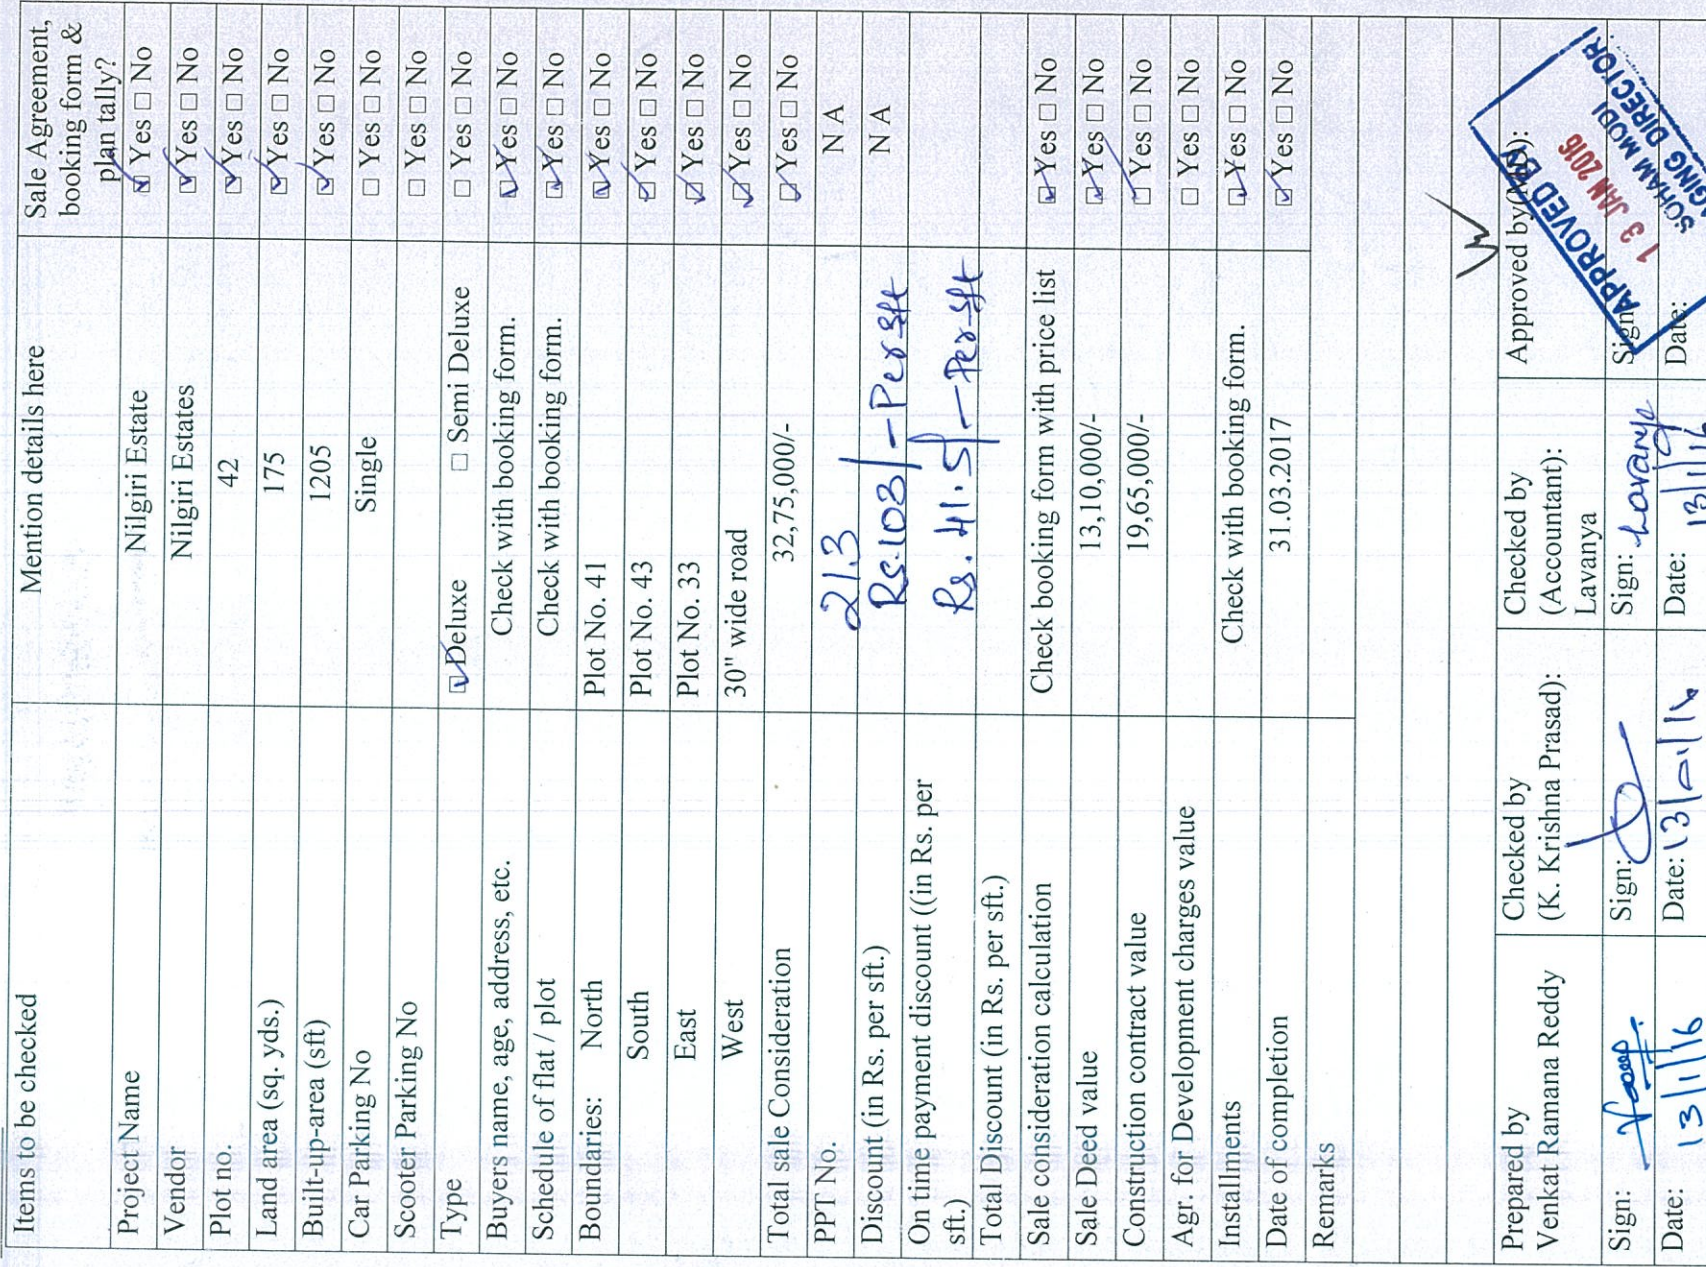 Items to be checked Mention details here Sale Agreement,
booking form &
plan tally?
Project Name Nilgiri Estate ☑ Yes □ No
Vendor Nilgiri Estates ☑ Yes □ No
Plot no. 42 ☑ Yes □ No
Land area (sq. yds.) 175 ☑ Yes □ No
Built-up-area (sft) 1205 ☑ Yes □ No
Car Parking No Single □ Yes □ No
Scooter Parking No □ Yes □ No
Type ☑ Deluxe □ Semi Deluxe □ Yes □ No
Buyers name, age, address, etc. Check with booking form. ☑ Yes □ No
Schedule of flat / plot Check with booking form. ☑ Yes □ No
Boundaries: North Plot No. 41 ☑ Yes □ No
South Plot No. 43 ☑ Yes □ No
East Plot No. 33 ☑ Yes □ No
West 30" wide road ☑ Yes □ No
Total sale Consideration 32,75,000/- ☑ Yes □ No
PPT No. 213 N A
Discount (in Rs. per sft.) Rs.103/- Per sft N A
On time payment discount ((in Rs. per
sft.) Rs. 41.5/- Per sft
Total Discount (in Rs. per sft.)
Sale consideration calculation Check booking form with price list ☑ Yes □ No
Sale Deed value 13,10,000/- ☑ Yes □ No
Construction contract value 19,65,000/- ☑ Yes □ No
Agr. for Development charges value □ Yes □ No
Installments Check with booking form. ☑ Yes □ No
Date of completion 31.03.2017 ☑ Yes □ No
Remarks
Prepared by
Venkat Ramana Reddy
Sign:
Date: 13/1/16
Checked by
(K. Krishna Prasad):
Sign:
Date: 13/01/16
Checked by
(Accountant):
Lavanya
Sign: Lavanya
Date: 13/1/16
Approved by (MD):
Sign:
Date:
APPROVED BY
13 JAN 2016
SOHAM MODI
DIRECTOR